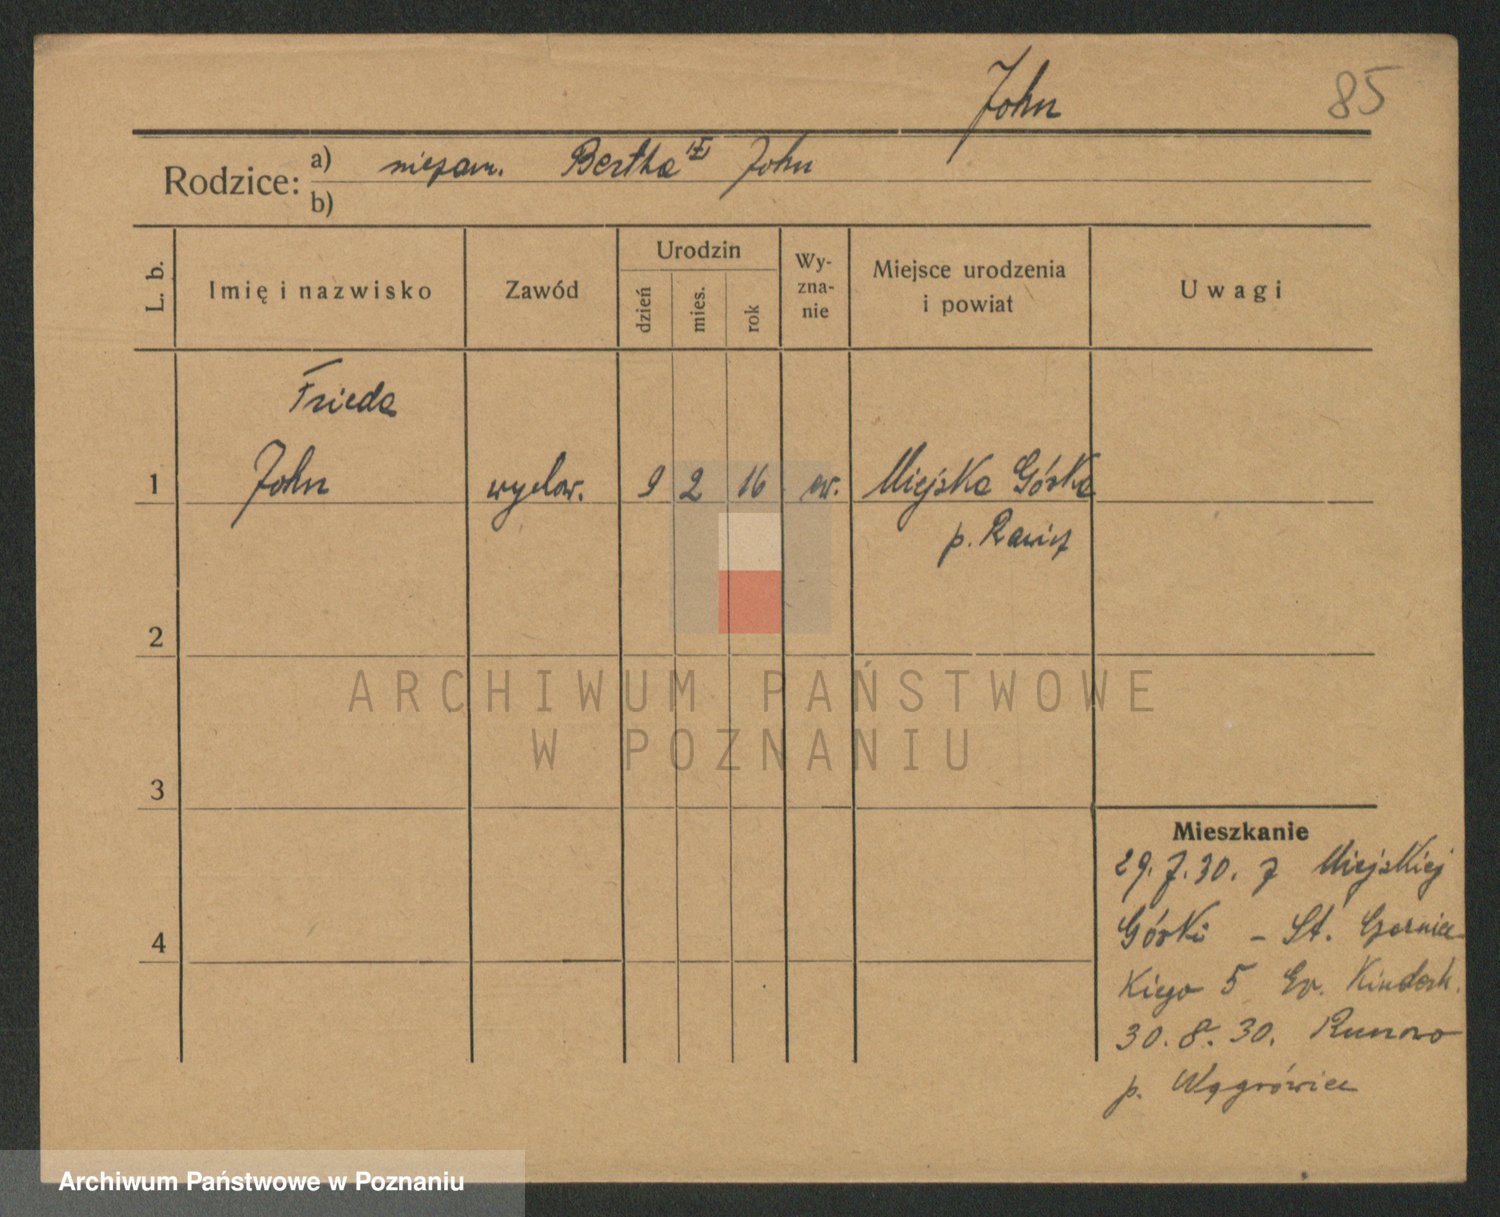 John
85
Rodzice: a) niezam. Bertha John
b)
L. b. Imię i nazwisko Zawód Urodzin dzień mies. rok Wy-zna-nie Miejsce urodzenia i powiat Uwagi
Frieda
1 John wychow. 9 2 16 ew. Miejska Górka
p. Rawicz
2
ARCHIWUM PAŃSTWOWE
W POZNANIU
3
Mieszkanie
29.7.30. z Miejskiej
Górki – St. Czarniec-
kiego 5 Ev. Kinderh.
4
30.8.30. Runowo
p. Wągrówiec
Archiwum Państwowe w Poznaniu